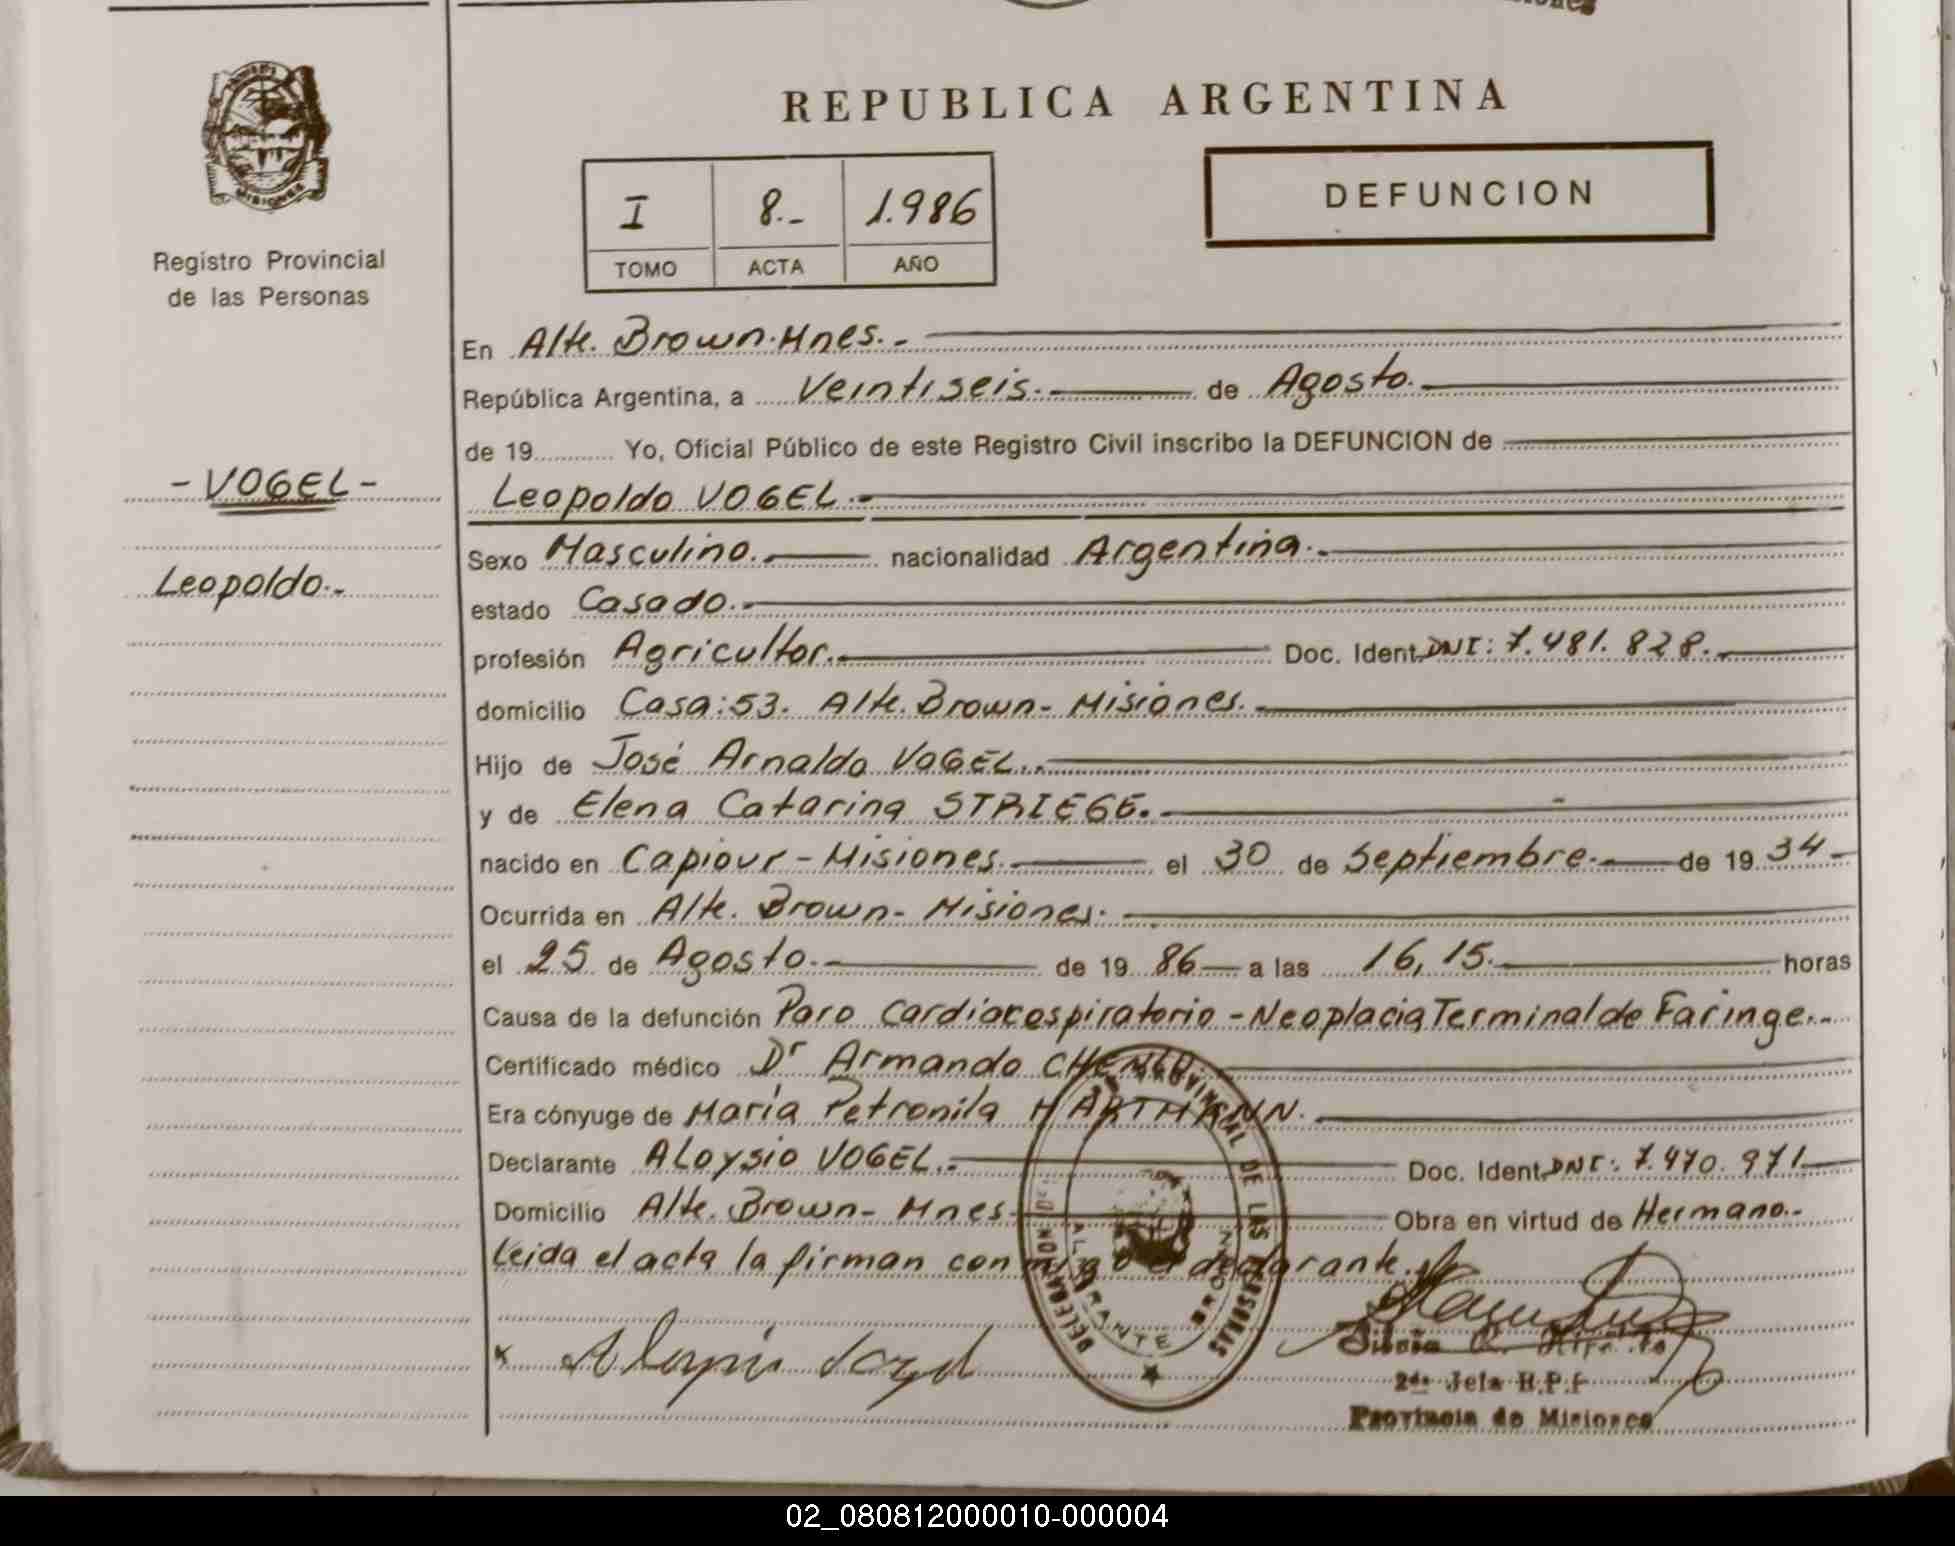 REPUBLICA ARGENTINA
MISIONES
Registro Provincial
de las Personas
I 8.- 1.986
TOMO ACTA AÑO
DEFUNCION
- VOGEL -
Leopoldo.-
En Alte. Brown-Mnes.-
República Argentina, a Veintiseis. de Agosto.
de 19 Yo, Oficial Público de este Registro Civil inscribo la DEFUNCION de
Leopoldo VOGEL.-
Sexo Masculino. nacionalidad Argentina.-
estado Casado.-
profesión Agricultor. Doc. Ident. DNI: 7.481.828.-
domicilio Casa:53. Alte. Brown- Misiones.-
Hijo de José Arnaldo VOGEL.-
y de Elena Catarina STRIEGE.-
nacido en Capiovr-Misiones. el 30 de Septiembre. de 19 34-
Ocurrida en Alte. Brown- Misiones.
el 25 de Agosto. de 19 86 a las 16,15. horas
Causa de la defunción Paro Cardiorespiratorio - Neoplacia Terminal de Faringe.-
Certificado médico Dr Armando
Era cónyuge de María Petronila HARTMANN.
Declarante ALoysio VOGEL.- Doc. Ident. DNI: 7.470.971
Domicilio Alte. Brown- Mnes. Obra en virtud de Hermano.-
Leida el acta la firman conmigo el declarante.
DELEGACION PROVINCIAL DE LAS PERSONAS
ALMIRANTE BROWN
x
2da Jefa R.P.P
Provincia de Misiones
02_080812000010-000004